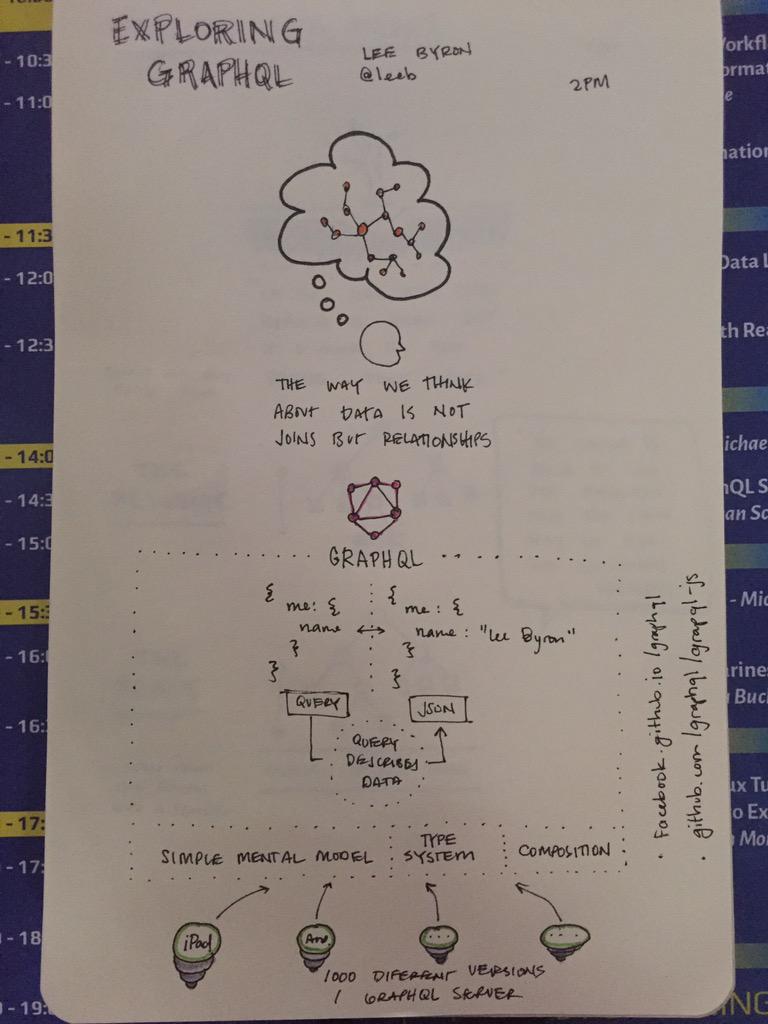 EXPLORING
GRAPHQL
LEE BYRON
@leeb
2PM
THE WAY WE THINK
ABOUT DATA IS NOT
JOINS BUT RELATIONSHIPS
GRAPHQL
{
me: {
name
}
}
{
me: {
name: "Lee Byron"
}
}
QUERY
JSON
QUERY
DESCRIBES
DATA
SIMPLE MENTAL MODEL
TYPE
SYSTEM
COMPOSITION
iPad
And.
1000 DIFERENT VERSIONS
1 GRAPHQL SERVER
• Facebook.github.io/graphql
• github.com/graphql/grapql-js
- 10:3
- 11:0
- 11:3
- 12:0
- 12:3
- 14:0
- 14:3
- 15:0
- 15:3
- 16:0
- 16:
- 17:
- 17:
- 18
- 19:
Data L
th Rea
ichae
QL S
an Sc
- Mic
Buck
ux Tu
o Ex
Mor
NG